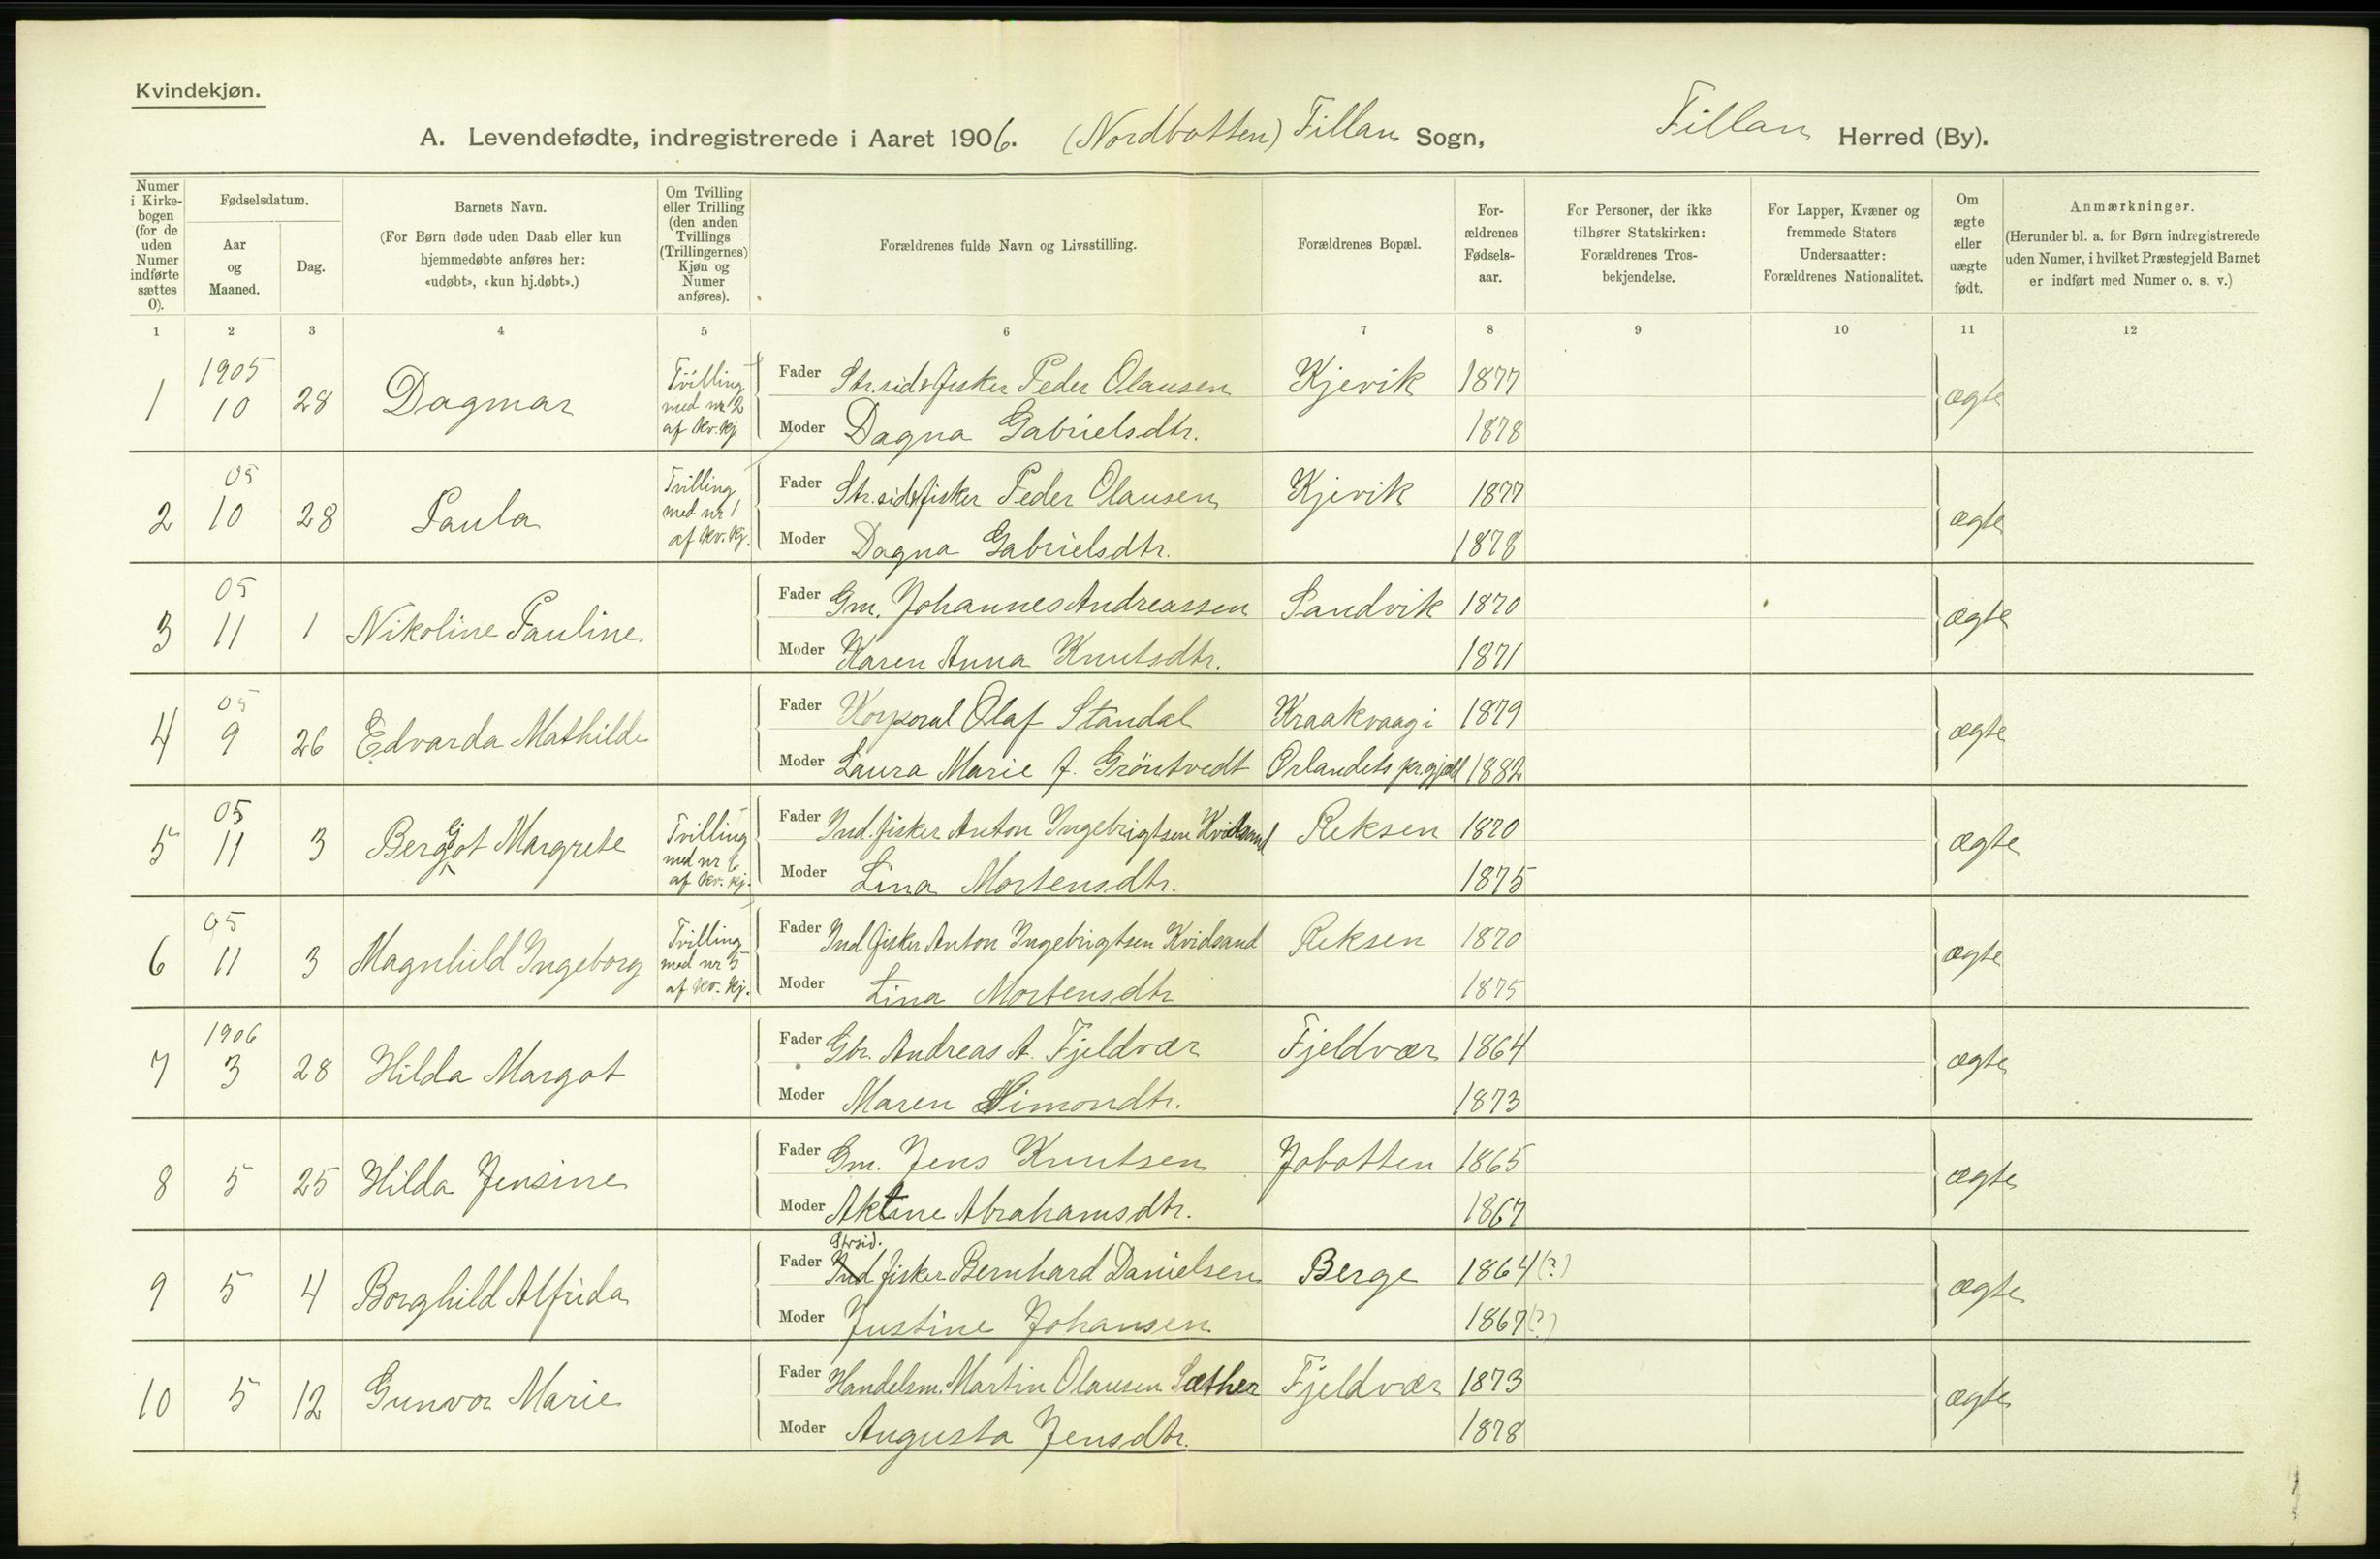 Kvindekjøn.
A. Levendefødte, indregistrerede i Aaret 1906. (Nordbotten) Fillan Sogn, Fillan Herred (By).
Numer i Kirkebogen (for de uden Numer indførte sættes O).
Fødselsdatum.
Aar og Maaned.
Dag.
Barnets Navn.
(For Børn døde uden Daab eller kun hjemmedøbte anføres her: «udøbt», «kun hj.døbt».)
Om Tvilling eller Trilling (den anden Tvillings (Trillingernes) Kjøn og Numer anføres).
Forældrenes fulde Navn og Livsstilling.
Forældrenes Bopæl.
Forældrenes Fødselsaar.
For Personer, der ikke tilhører Statskirken: Forældrenes Trosbekjendelse.
For Lapper, Kvæner og fremmede Staters Undersaatter: Forældrenes Nationalitet.
Om ægte eller uægte født.
Anmærkninger.
(Herunder bl. a. for Børn indregistrerede uden Numer, i hvilket Præstegjeld Barnet er indført med Numer o. s. v.)
1 2 3 4 5 6 7 8 9 10 11 12
1 1905 10 28 Dagmar Tvilling med nr 2 af kv.kj. Fader Str.sid.fisker Peder Olausen Kjevik 1877 ægte
Moder Dagna Gabrielsdtr. 1878
2 05 10 28 Paula Tvilling med nr 1 af kv.kj. Fader Str.sid.fisker Peder Olausen Kjevik 1877 ægte
Moder Dagna Gabrielsdtr. 1878
3 05 11 1 Nikoline Pauline Fader Gm. Johannes Andreassen Sandvik 1870 ægte
Moder Karen Anna Knutsdtr. 1871
4 05 9 26 Edvarda Mathilde Fader Korporal Olaf Standal Kraakvaag i 1879 ægte
Moder Laura Marie J. Gröntvedt Ørlandets prgjeld 1882
5 05 11 3 Berggot Margrete Tvilling med nr 6 af kv. kj. Fader Ind. fisker Anton Ingebrigtsen Kvidsand Reksen 1870 ægte
Moder Lina Mortensdtr. 1875
6 05 11 3 Magnhild Ingeborg Tvilling med nr 5 af kv. kj. Fader Ind fisker Anton Ingebrigtsen Kvidsand Reksen 1870 ægte
Moder Lina Mortensdtr 1875
7 1906 3 28 Hilda Margot Fader Gbr. Andreas A. Fjeldvær Fjeldvær 1864 ægte
Moder Maren Simondtr. 1873
8 5 25 Hilda Jensine Fader Gm. Jens Knutsen Jobotten 1865 ægte
Moder Aktine Abrahamsdtr. 1867
Strsid.
9 5 4 Borghild Alfrida Fader Ind fisker Bernhard Danielsen Berge 1864 (?) ægte
Moder Justine Johansen 1867 (?)
10 5 12 Gunvor Marie Fader Handelsm. Martin Olausen Sæther Fjeldvær 1873 ægte
Moder Augusta Jensdtr. 1878